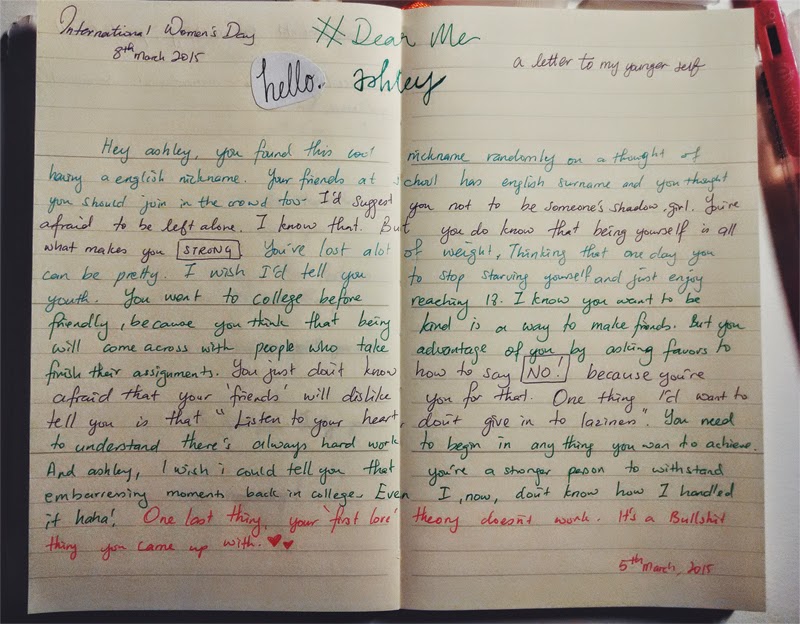 International Women's Day
8th March 2015
#Dear Me
a letter to my younger self
hello.
ashley
Hey ashley, you found this cool nickname randomly on a thought of
having a english nickname. Your friends at school has english surname and you thought
you should join in the crowd too. I'd suggest you not to be someone's shadow, girl. You're
afraid to be left alone. I know that. But you do know that being yourself is all
what makes you STRONG. You've lost alot of weight, Thinking that one day you
can be pretty. I wish I'd tell you to stop starving yourself and just enjoy
youth. You went to college before reaching 18. I know you want to be
friendly, because you think that being kind is a way to make friends. But you
will come across with people who take advantage of you by asking favors to
finish their assignments. You just don't know how to say NO! because you're
afraid that your 'friends' will dislike you for that. One thing I'd want to
tell you is that "Listen to your heart, don't give in to laziness". You need
to understand there's always hard work to begin in any thing you wan to achieve.
And ashley, I wish i could tell you that you're a stronger person to withstand
embarressing moments back in college. Even I, now, don't know how I handled
it haha! One last thing, your 'first love' theory doesn't work. It's a Bullshit
thing you came up with. ♥♥
5th March, 2015